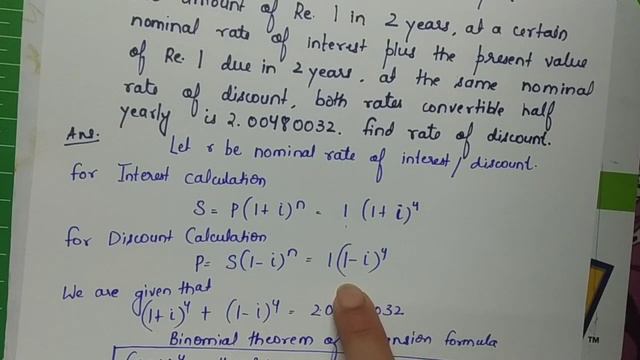 amount of Re. 1 in 2 years, at a certain
nominal rate of interest plus the present value
of Re. 1 due in 2 years, at the same nominal
rate of discount, both rates convertible half
yearly is 2.00480032. find rate of discount.
Ans. Let r be nominal rate of interest/discount.
for Interest calculation
S = P(1+i)^n = 1 (1+i)^4
for Discount Calculation
P = S(1-i)^n = 1(1-i)^4
We are given that
(1+i)^4 + (1-i)^4 = 20 0032
Binomial theorem formula
TM